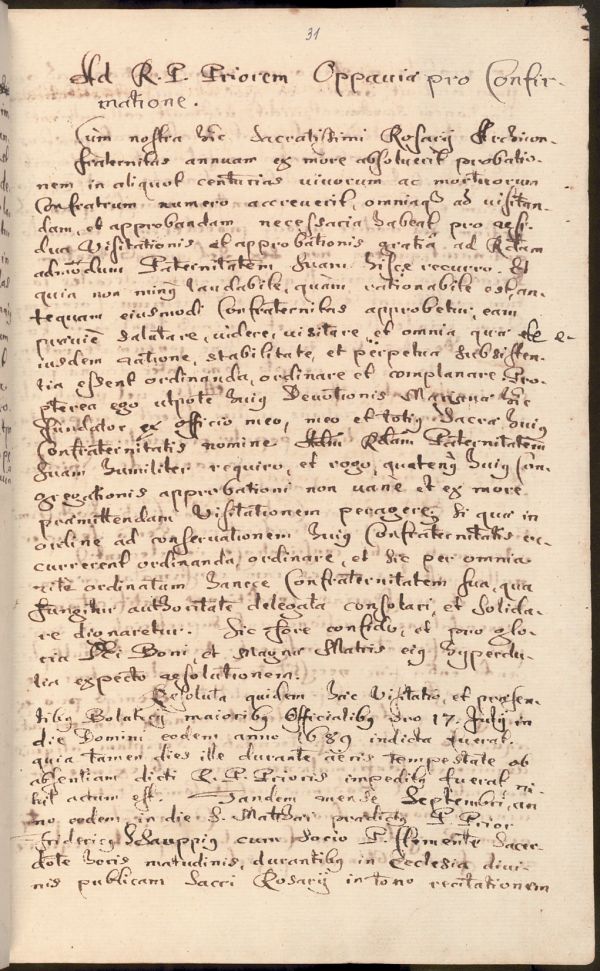 31
Ad R. P. Priorem Oppaviæ pro Confir-
matione.
Cum nostra hic Sacratissimi Rosarij Archicon-
fraternitas annuam ex more absolverit probatio-
nem in aliquot centurias vivorum ac mortuorum
Confratrum numero accreverit, omniaq3 ad visitan-
dam, et approbandam necessaria habeat pro
Visitationis et approbationis gratia ad Rdam
admodum Paternitatem Suam hisce recurro. Et
quia non minus laudabile, quam rationabile est, an-
tequam eiusmodi Confraternitas approbetur, eam
prævie salutare, videre, visitare, et omnia quæ e-
iusdem ratione, stabilitate, et perpetua subsisten-
tia essent ordinanda, ordinare et complanare. Pro-
pterea ego utpote huius Devotionis Marianæ hic
Fundator ex officio meo, meo et totius Sacræ huius
Confraternitatis nomine Adm Rdam Paternitatem
Suam humiliter requiro, et rogo, quatenus huius Con-
gregationis approbationi non vane et ex more
præmittendam Visitationem peragere; si quæ in
ordine ad conservationem huius Confraternitatis oc-
currerent ordinanda, ordinare, et sic per omnia
rite ordinatam hance Confraternitatem sua, qua
fungitur authoritate delegata consolari, et solida-
re dignaretur. Sic fore confido, et pro glo-
ria Dei Boni et Magnæ Matris eius hyperdu-
lia expecto resolutionem.
Resoluta quidem hæc Visitatio, et præsen-
tibus maioribus Officialibus pro 17. Julij in
die Domini eodem anno 1689 indicta fuerat.
quia tamen dies ille durante aëris tempestate ob
absentiam dicti R. P. Prioris impeditus fuerat ni-
hil actum est. Tandem mense Septembri, an-
no eodem in die S. Matthæi prædictus P. Prior
Fridericus Schauppius cum Socio P. Clemente Sacer-
dote horis matudinis, durantibus in Ecclesia divi-
nis publicam Sacri Rosarij in tono recitationem